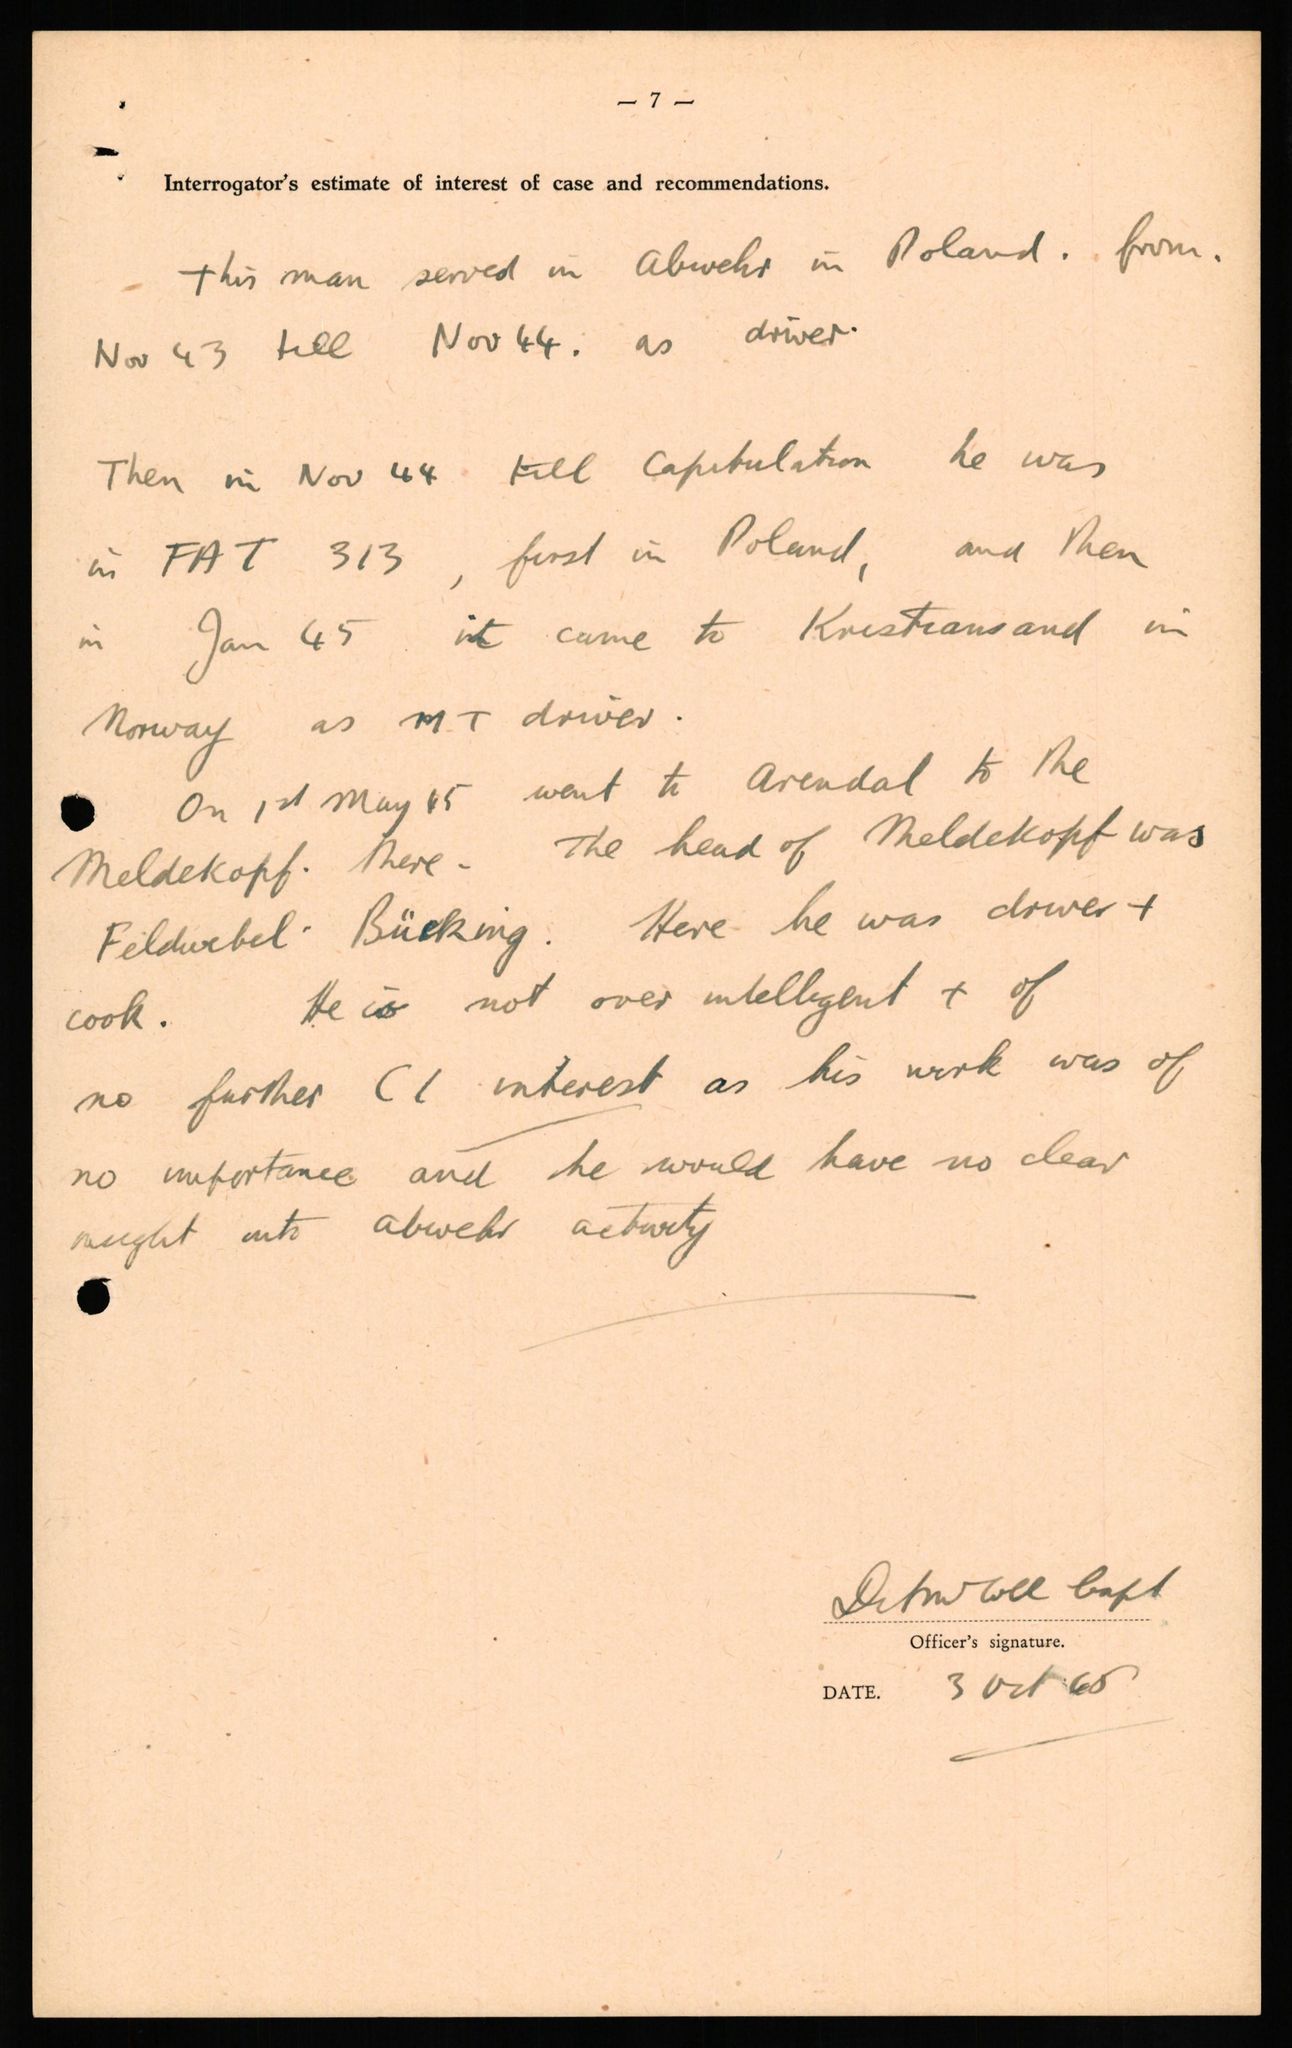 — 7 —
Interrogator's estimate of interest of case and recommendations.
This man served in Abwehr in Poland. from.
Nov 43 till Nov 44. as driver.
Then in Nov 44 till Capitulation he was
in FAT 313, first in Poland, and then
in Jan 45 it came to Kristiansand in
Norway as MT driver.
On 1st May 45 went to Arendal to the
Meldekopf. there. The head of Meldekopf was
Feldwebel Bücking. Here he was driver +
cook. He is not over intelligent + of
no further CI interest as his work was of
no importance and he would have no clear
insight into abwehr activity
Capt
Officer's signature.
DATE. 3 Oct 45